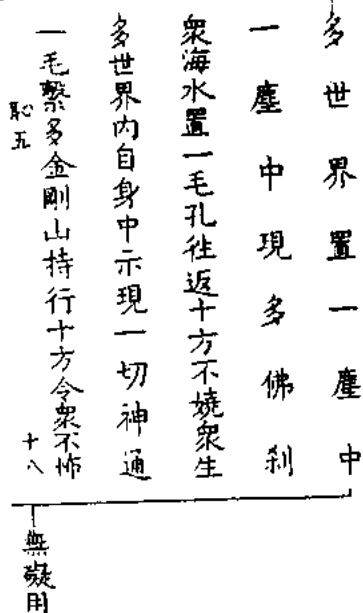 多世界置一塵中
一塵中現多佛刹
衆海水置一毛孔徃返十方不嬈衆生
多世界内自身中示現一切神通
一毛繫多金剛山持行十方令衆不怖
恥五
十八
無礙用